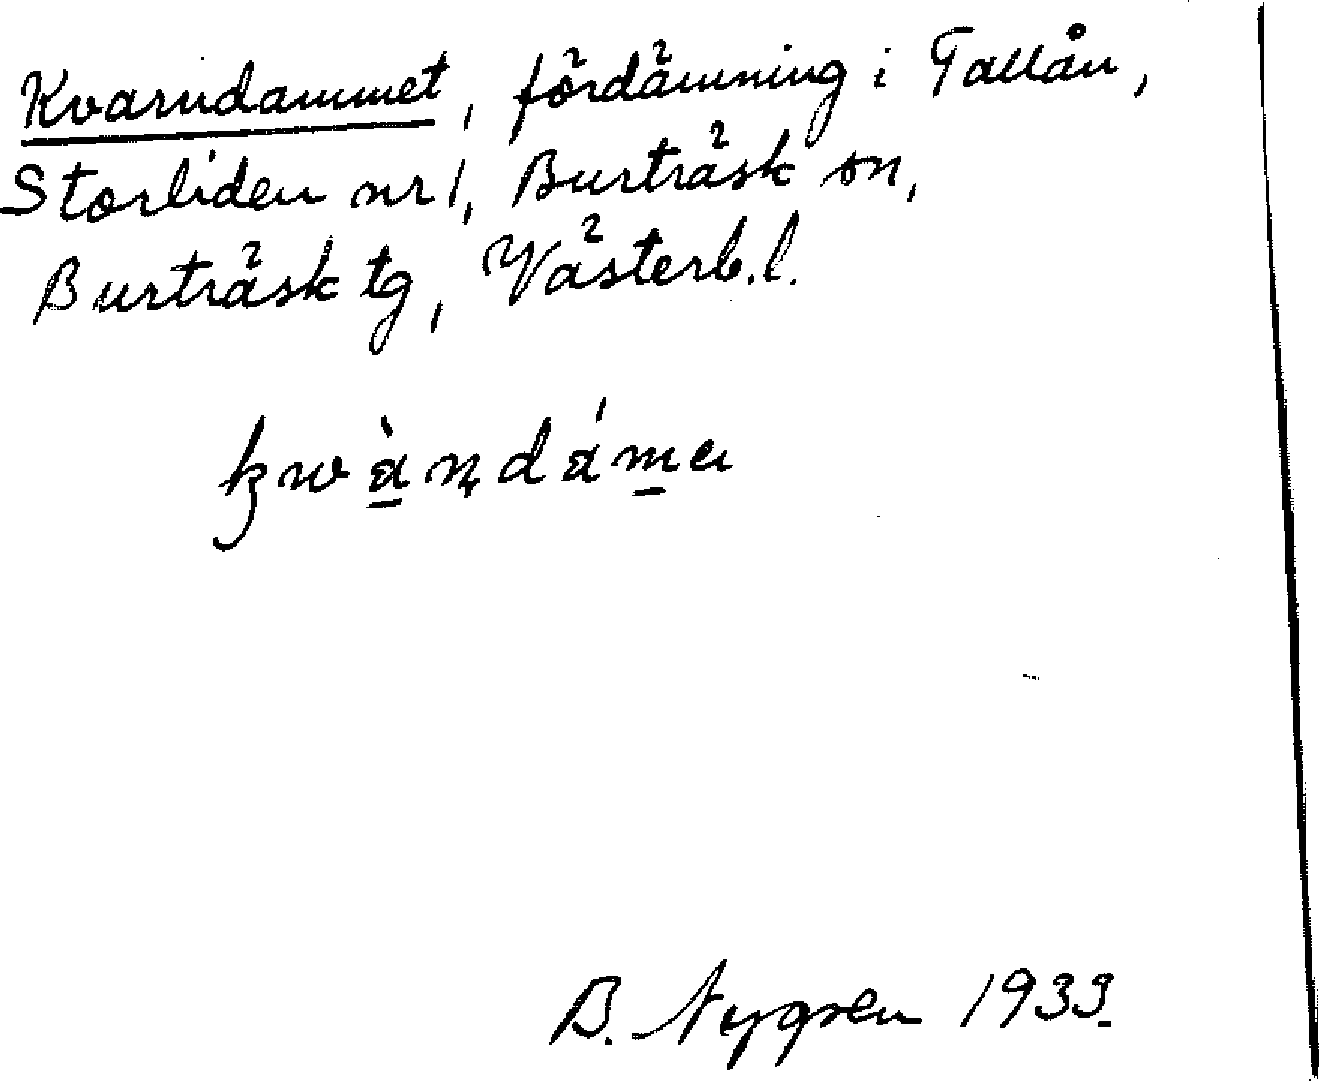 Kvarndammet, fördämning i Tallån,
Storliden nr 1, Burträsk sn,
Burträsk tg, Västerb. l.
kwàṇdáma
B. Nygren 1933.